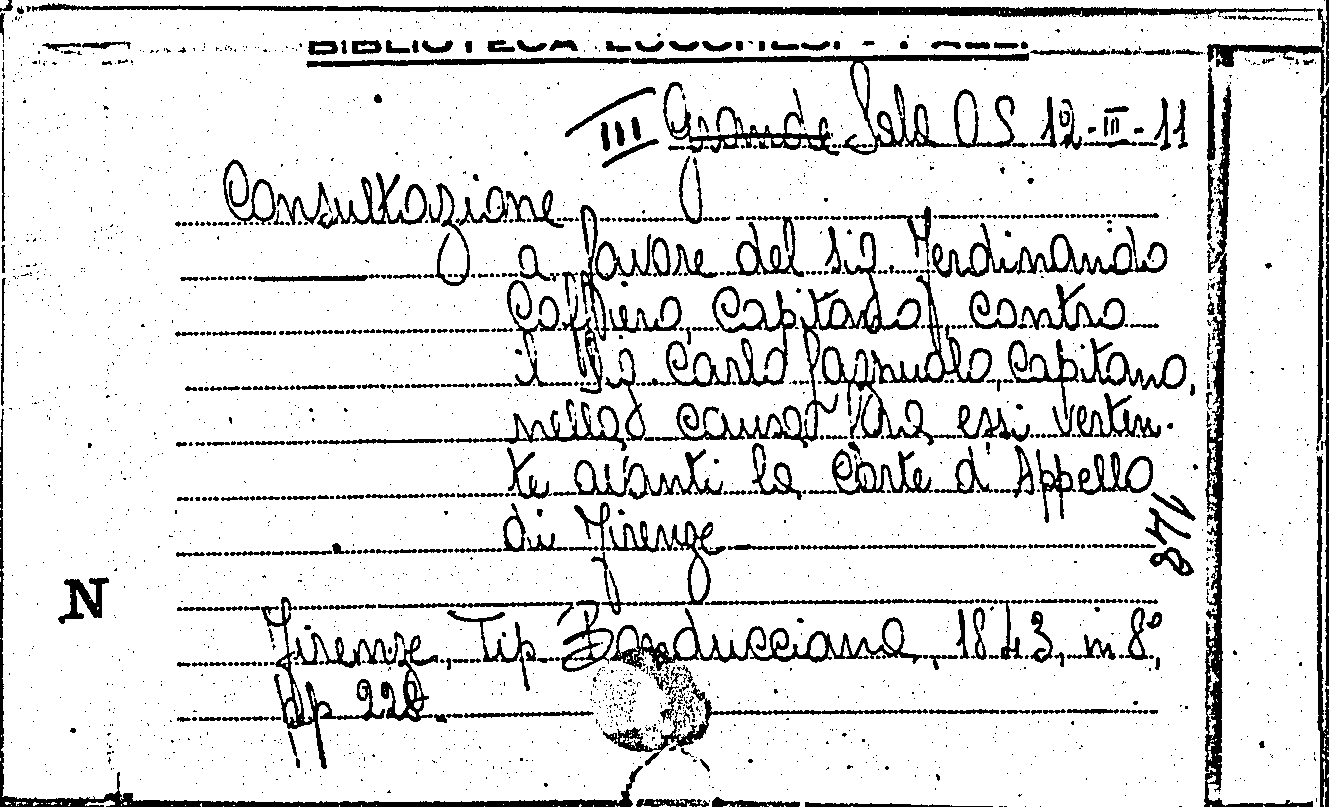 BIBLIOTECA
III Grande Sala O S 12-III-11
Consultazione
a favore del sig. Ferdinando
Caffiero, Capitano, contro
il Sig. Carlo Capitano,
nella causa fra essi verten-
te avanti la Corte d'Appello
di Firenze
148
N
Firenze, Tip. Barducciana, 1843, in 8°,
pp 228.